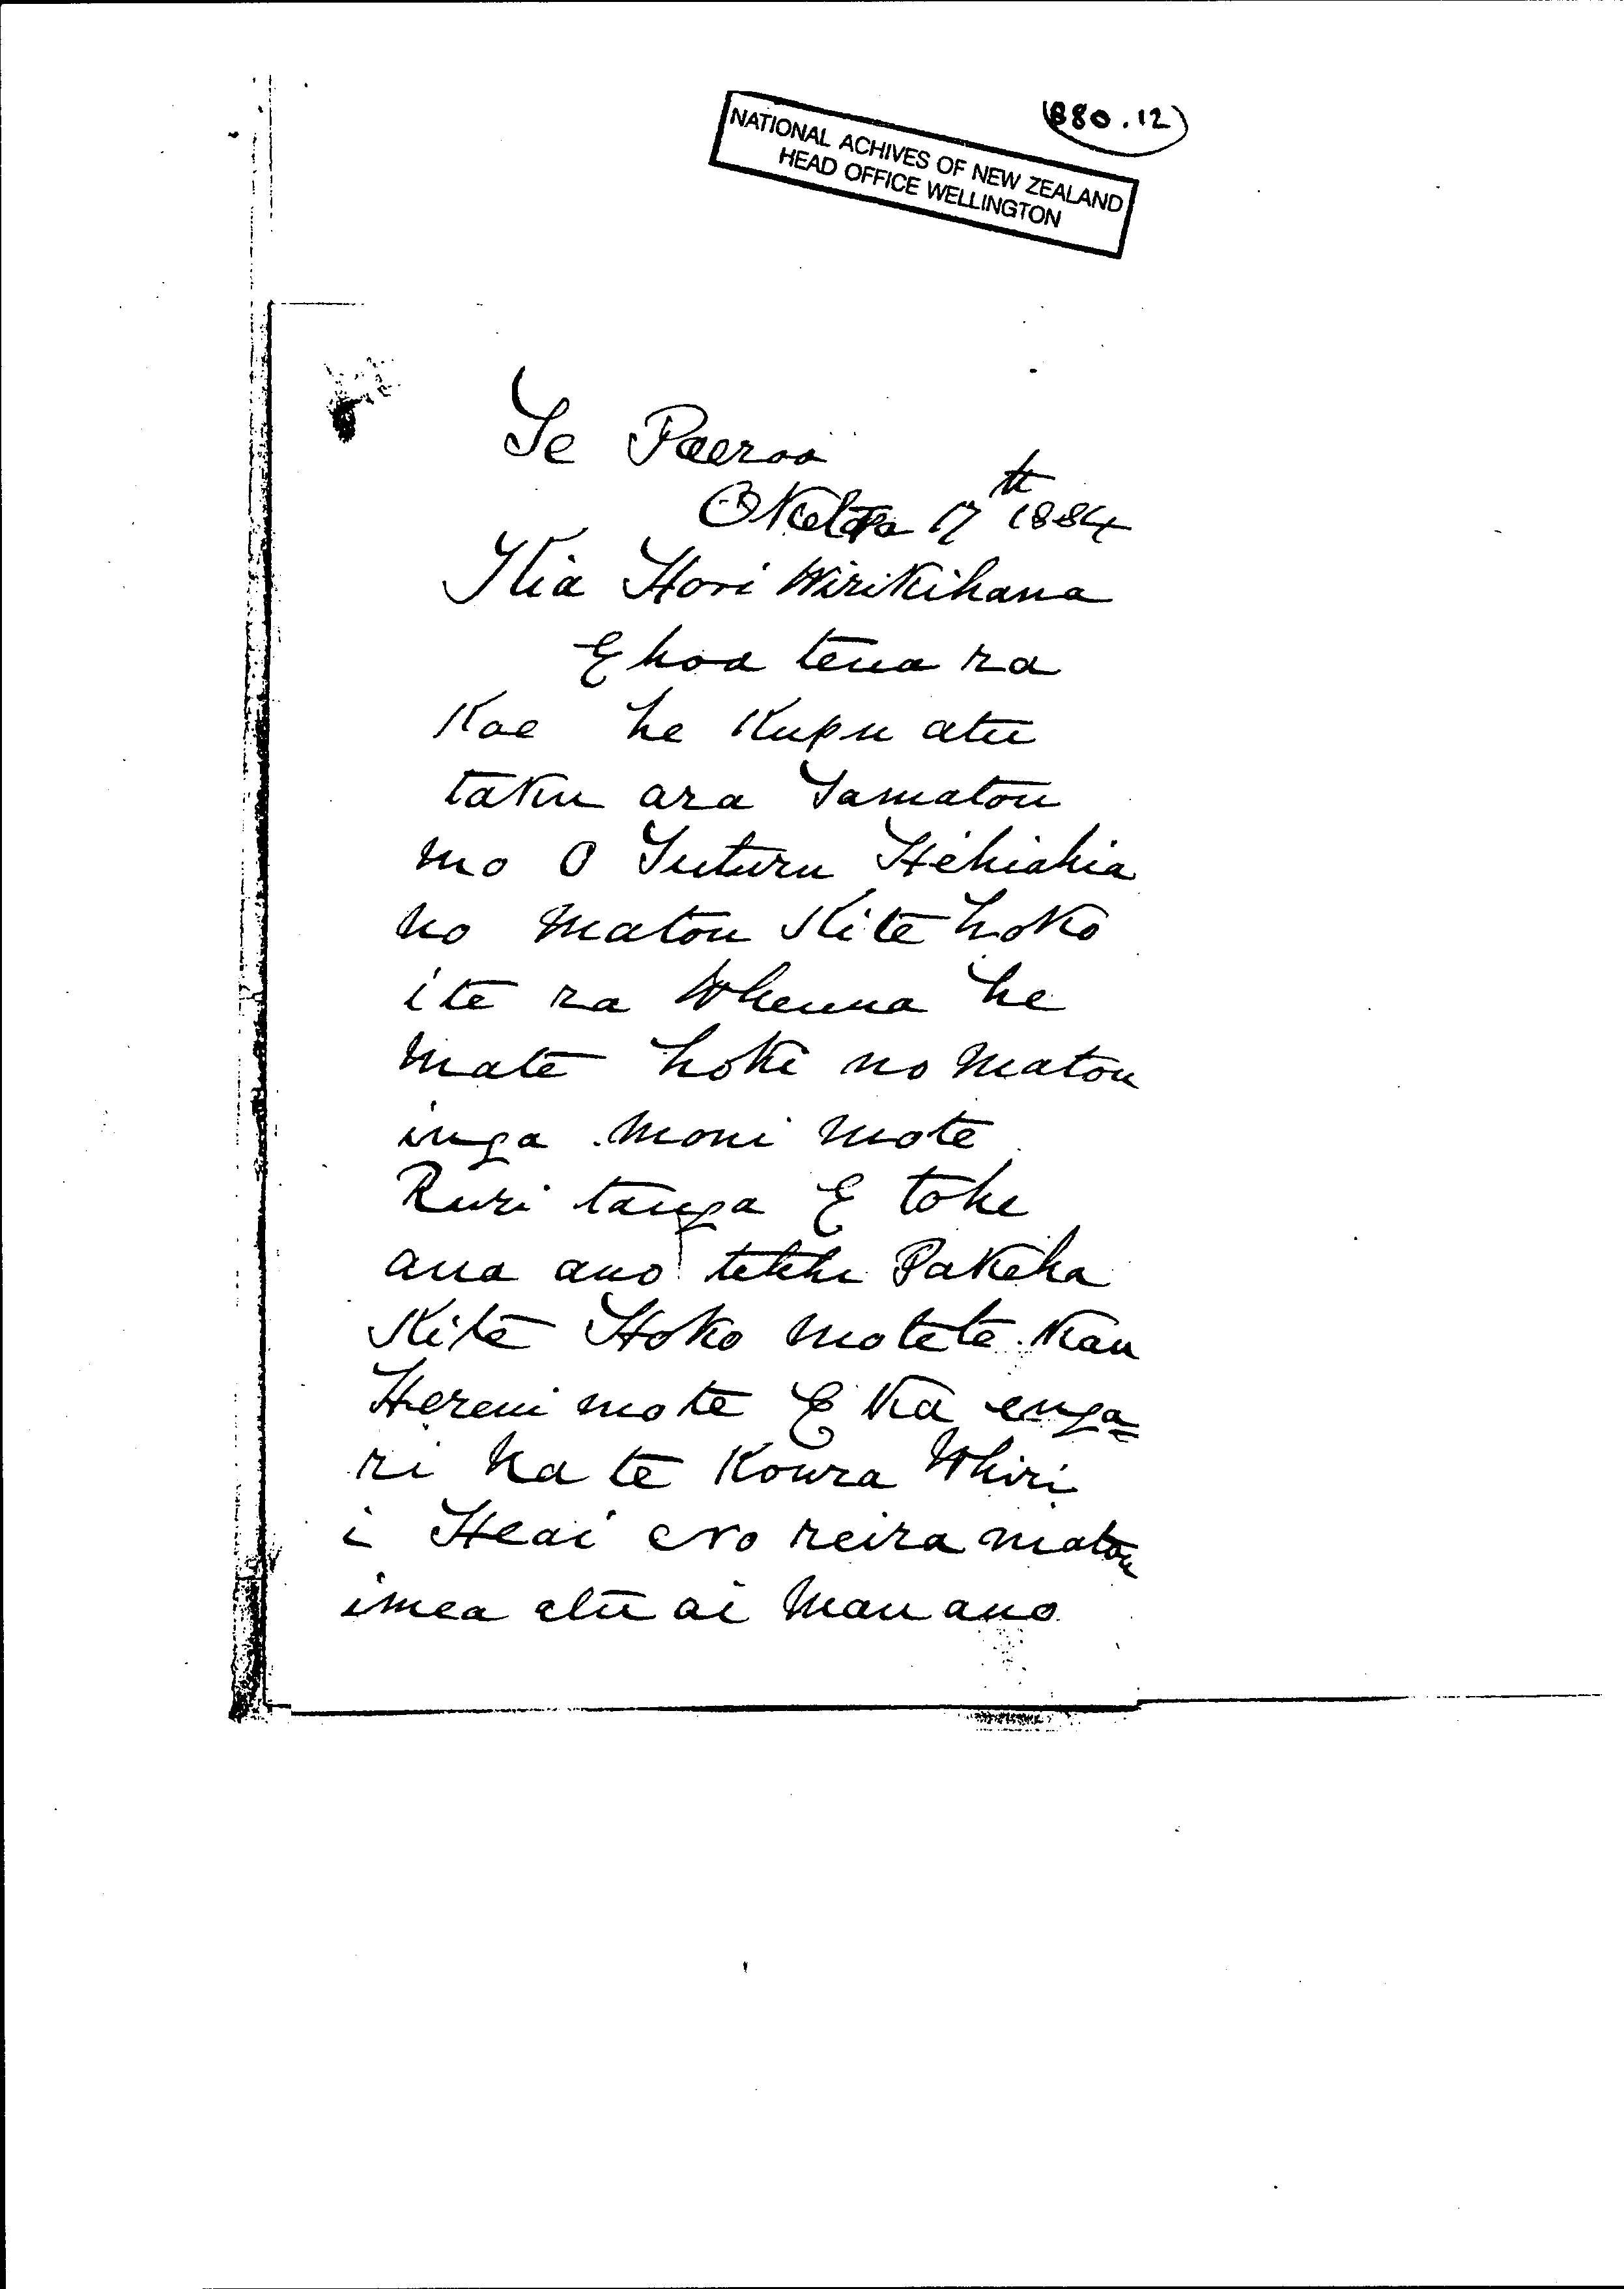 (B80.12)
NATIONAL ACHIVES OF NEW ZEALAND
HEAD OFFICE WELLINGTON
Te Paeroa
Oketopa 17th 1884
Kia Hori Wirikihana
E hoa tena ra
Koe he Kupu atu
taku ara Tamatou
mo O Tuturu Hehiahia
no matou Kite hoko
ite ra Whenua he
mate hoki no matou
inga moni mote
Ruri tanga E tohe
ana ano tetehi Pakeha
Kite Hoko motete Kau
Hereni mote E Ka enga=
ri Na te Koura Whiri
i Heai No reira matou
imea atu ai Mau ano